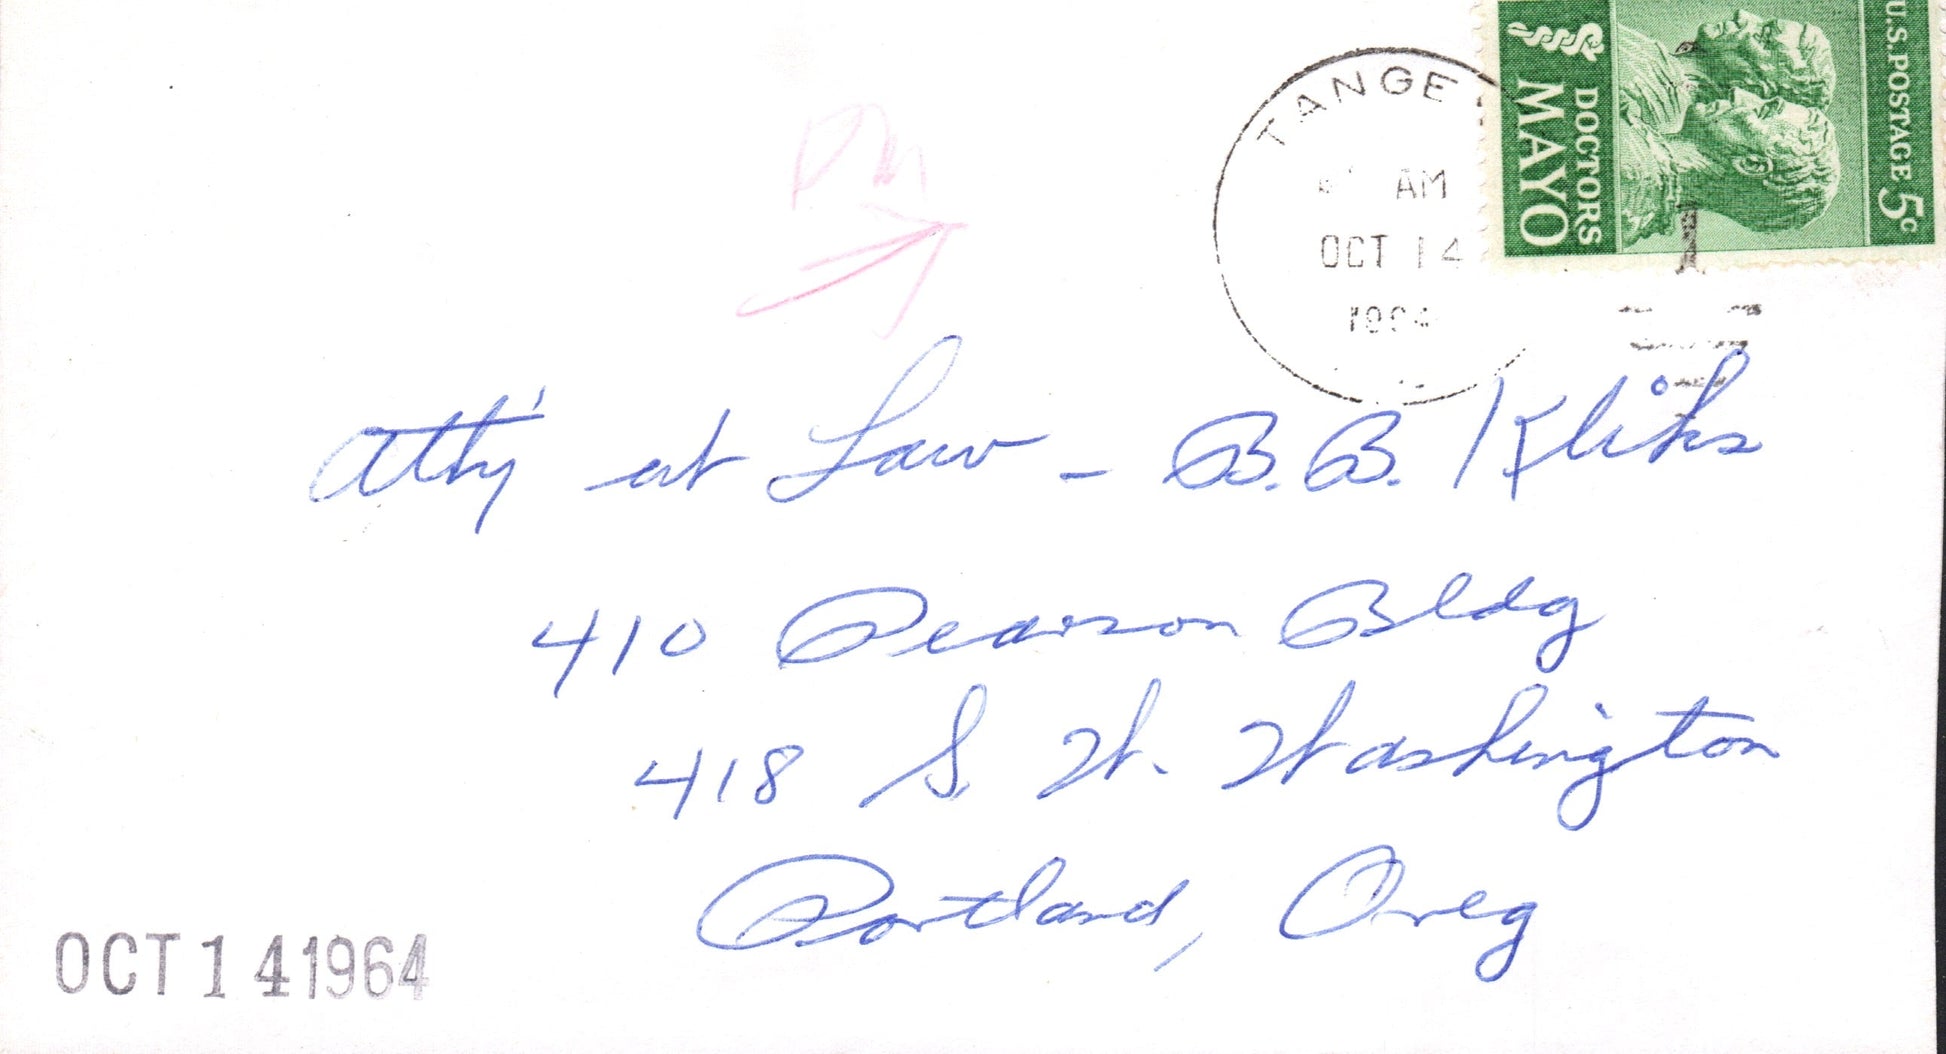 U.S. POSTAGE 5¢
DOCTORS
MAYO
TANGE
AM
OCT 14
1964
PM
Att'y at Law - B. B. Kliks
410 Pearson Bldg
418 S. W. Washington
Portland, Oreg
OCT 14 1964